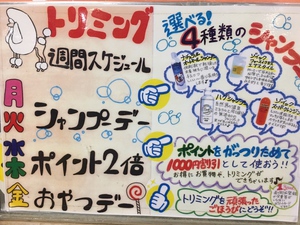 トリミング
週間スケジュール
月
火
水
木
金
シャンプーデー
ポイント2倍
おやつデー
選べる!
4種類の
シャンプ
ポイントをがっつりためて
1000円割引として使おう!!
お得にお買物や、トリミングが
できちゃいます
トリミングを頑張った
ごほうびにどうぞ!!